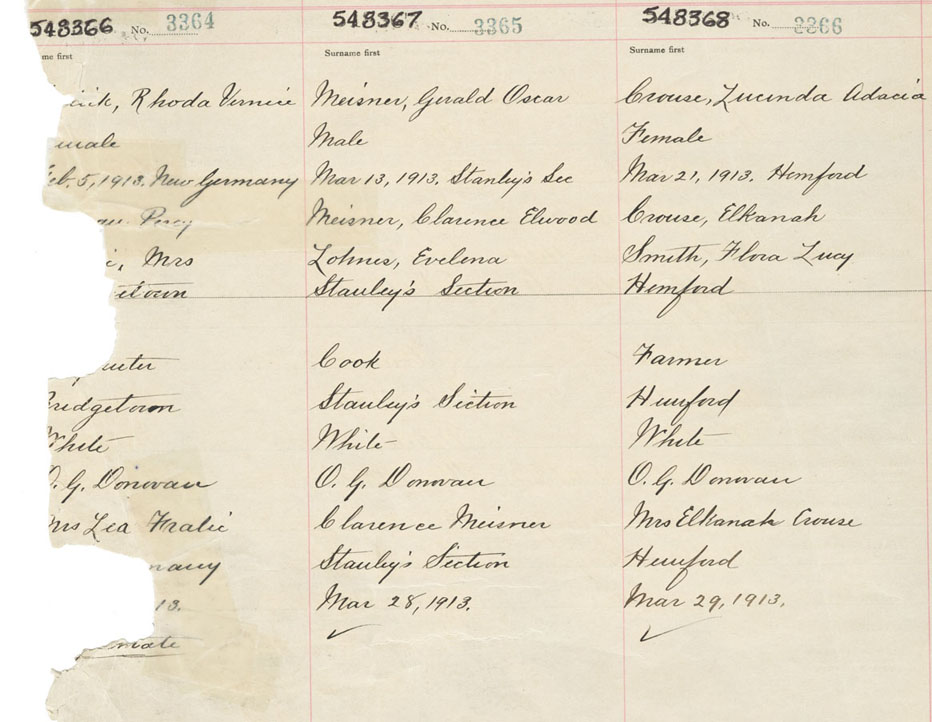 548366 No. 3364 548367 No. 3365 548368 No. 3366
me first Surname first Surname first
Rhoda Vernice Meisner, Gerald Oscar Crouse, Lucinda Adacia
male Male Female
eb. 5, 1913. New Germany Mar 13, 1913. Stanley's Sec Mar 21, 1913. Hemford
Percy Meisner, Clarence Elwood Crouse, Elkanah
Mrs Lohnes, Evelena Smith, Flora Lucy
etown Stanley's Section Hemford
Cook Farmer
ridgetown Stanley's Section Hemford
White White White
O. G. Donovan O. G. Donovan O. G. Donovan
Mrs Lea Fralic Clarence Meisner Mrs Elkanah Crouse
many Stanley's Section Hemford
13. Mar 28, 1913. Mar 29, 1913.